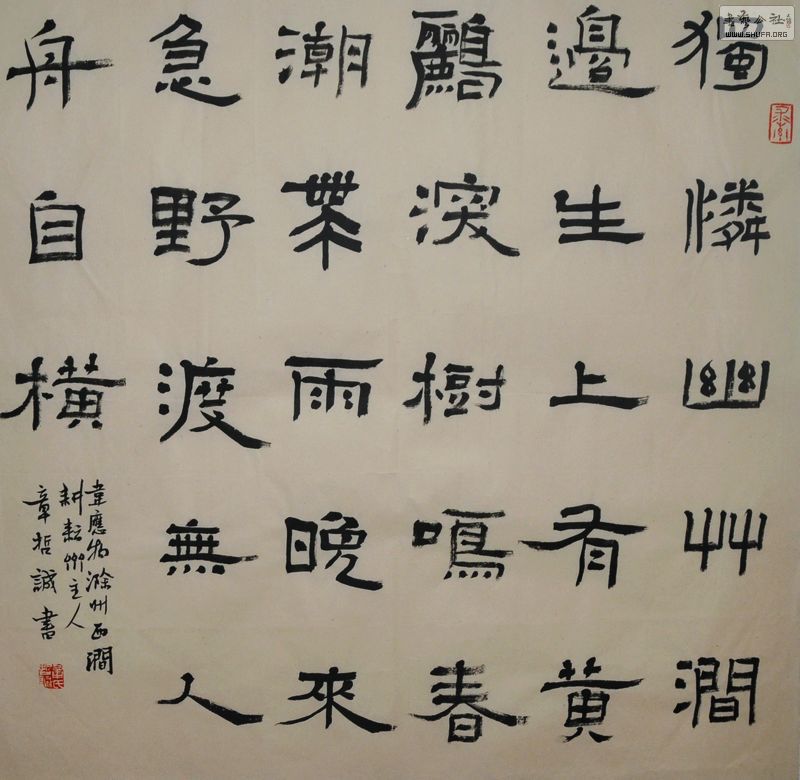 獨憐幽艸澗
邊生上有黃
鸝深樹鳴春
潮帶雨晚來
急野渡無人
舟自橫
韋應物滁州西澗
耕耘草主人
章哲誠書
书艺公社
WWW.SHUFA.ORG